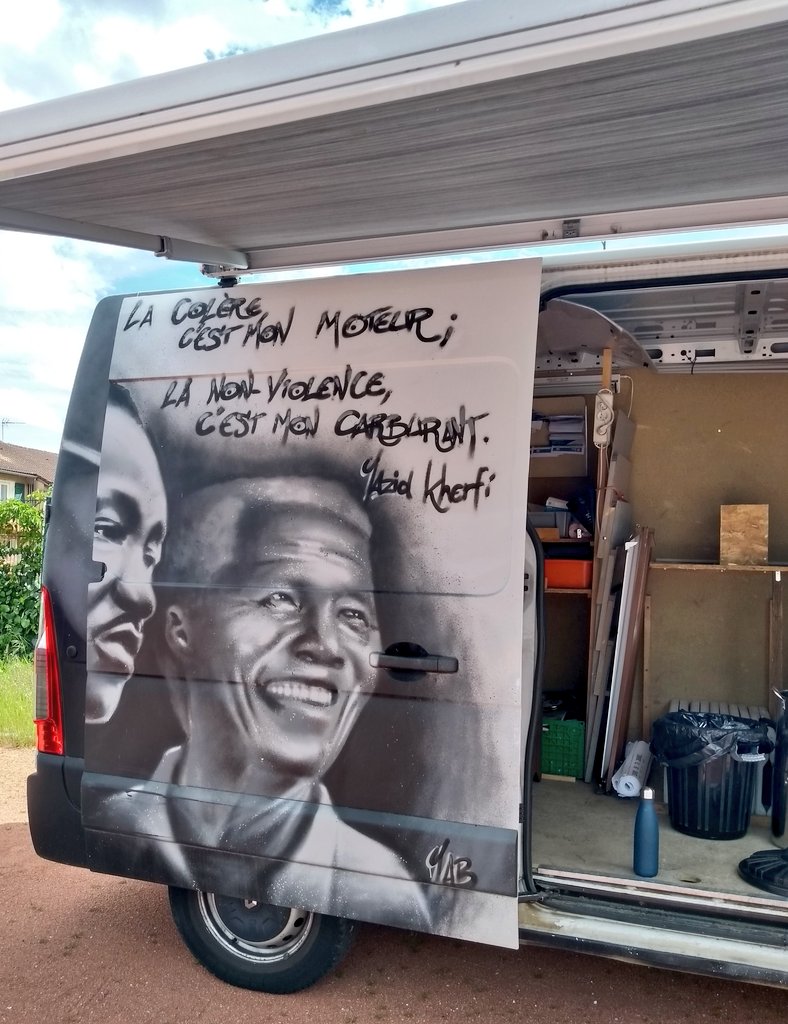 LA COLÈRE,
C'EST MON MOTEUR;
LA NON-VIOLENCE,
C'EST MON CARBURANT.
Yazid Kherfi